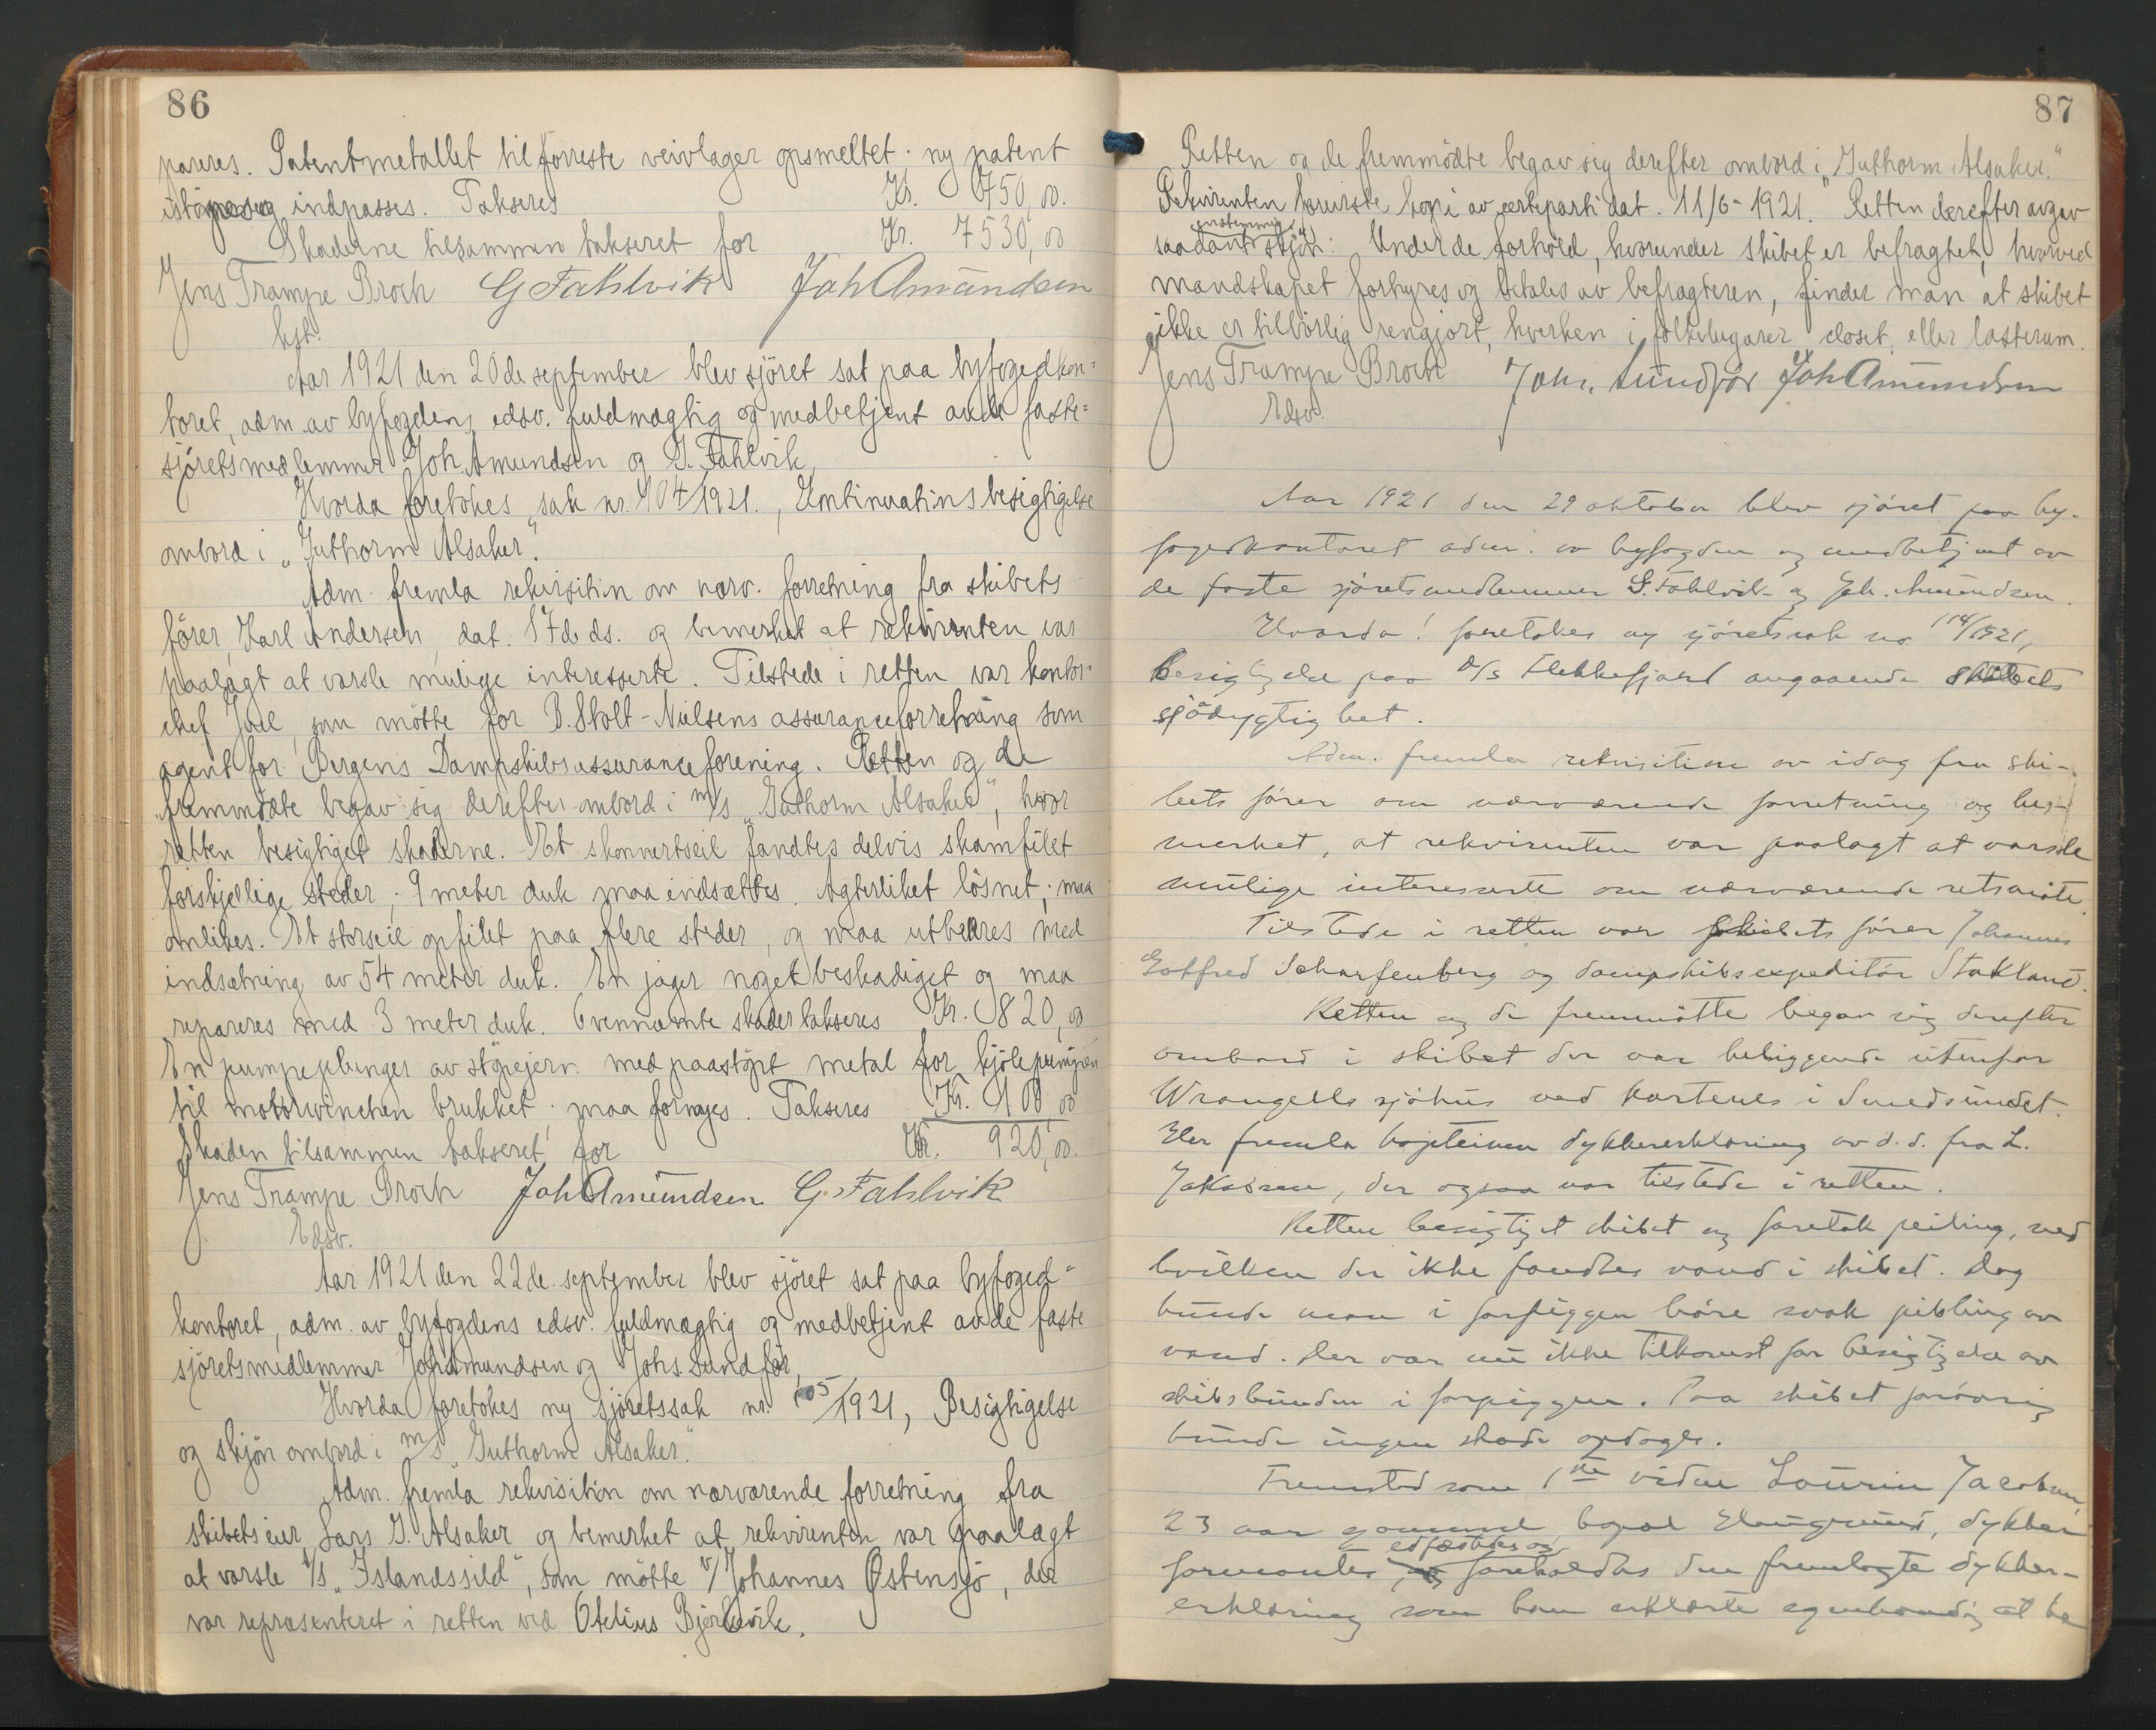 86
pareres. Patentmetallet til forreste veivlager opsmeltet. ny patent
istöpes og indpasses. Takseres Kr. 750,00.
Skaderne tilsammen takseret for Kr. 7530,00
Jens Trampe Broch G Fahlvik Joh Amundsen
kst.
Aar 1921 den 20de september blev sjöret sat paa byfogedkon=
toret, adm. av byfogdens edsv. fuldmægtig og medbetjent av de faste=
sjöretsmedlemmer Joh. Amundsen og G. Fahlvik,
Hvorda foretokes sak nr. 104/1921., Kontinuationsbesigtigelse
ombord i „Guthorm Alsaker".
Adm. fremla rekvisition om nærv. forretning fra skibets
fører, Karl Andersen, dat. 17de ds. og bemerket at rekvirenten var
paalagt at varsle mulige interesserte. Tilstede i retten var kontor=
chef Juel, som mötte for B. Stolt-Nielsens assuranceforretning som
agent for Bergens Dampskibsassuranceforening. Retten og de
fremmödte begav sig derefter ombord i m/s „Guthorm Alsaker", hvor
retten besigtiget skaderne. Et skonnertseil fandtes delvis skamfilet
forskjellige steder; 9 meter duk maa indsættes. Agterliket lösnet; maa
omlikes. Et storseil opfilet paa flere steder, og maa utbedres med
indsætning av 54 meter duk. En jager noget beskadiget og maa
repareres med 3 meter duk. Ovennævnte skader takseres Kr. 820,00
En pumpeplunger av stöpejern med paastöpt metal for kjölepumpen
til motorwinchen brukket; maa fornyes. Takseres Kr. 100,00
Skaden tilsammen takseret for Kr. 920,00.
Jens Trampe Broch Joh Amundsen G. Fahlvik
Edsv.
Aar 1921 den 22de september blev sjöret sat paa byfoged=
kontoret, adm. av byfogdens edsv. fuldmægtig og medbetjent av de faste
sjöretsmedlemmer Joh Amundsen og Johs Sundför,
Hvorda foretokes ny sjöretssak nr. 105/1921, Besigtigelse
og skjön ombord i m/s „Guthorm Alsaker".
Adm. fremla rekvisition om nærværende forretning fra
skibets eier Lars G. Alsaker og bemerket at rekvirenten var paalagt
at varsle A/s „Islandssild", som mötte v/ Johannes Østensjö, der
var repræsenteret i retten ved Otelius Bjerkevik.
87
Retten og de fremmödte begav sig derefter ombord i „Guthorm Alsaker."
Rekvirenten foreviste kopi av certeparti dat. 11/6-1921. Retten derefter avgav
enstemmig
saadant skjön: Under de forhold, hvorunder skibet er befragtet, hvorved
mandskapet forhyres og betales av befragteren, finder man at skibet
ikke er tilbörlig rengjort, hverken i folkelugarer, closet, eller lasterum.
Jens Trampe Broch Johs. Sundför Joh Amundsen
Edsv.
Aar 1921 den 29 oktober blev sjöret paa by-
fogedkontoret adm. av byfogden og medbetjent av
de faste sjöretsmedlemmer G. Fahlvik og Joh. Amundsen.
Hvorda! foretokes ny sjöretssak no. 114/1921,
Besigtigelse paa D/S Flekkefjord angaaende skibets
sjödygtighet.
Adm. fremla rekvisition av idag fra ski-
bets förer om nærværende forretning og be-
merket, at rekvirenten var paalagt at varsle
mulige interesserte om nærværende retsmöte.
Tilstede i retten var skibets förer Johannes
Gotfred Scharfenberg og dampskibsexpeditör Stakland.
Retten og de fremmötte begav sig derefter
ombord i skibet der var beliggende utenfor
Wrangells sjöhus ved Kortenes i Smedsundet.
Her fremla kapteinen dykkererklæring av d.d. fra L.
Jakobsen, der ogsaa var tilstede i retten.
Retten besigtiget skibet og foretok peiling, ved
hvilken der ikke fandtes vand i skibet. Dog
kunde man i forpiggen höre svak pibling av
vand. Der var nu ikke tilkomst for besigtigelse av
skibsbunden i forpiggen. Paa skibet forövrig
kunde ingen skade opdages.
Fremsted som 1ste vidne Laurin Jacobsen,
23 aar gammel, bopæl Haugesund, dykker
edfæstedes og
formantes, foreholdtes den fremlagte dykker-
erklæring som han erklærte egenhændig at ha